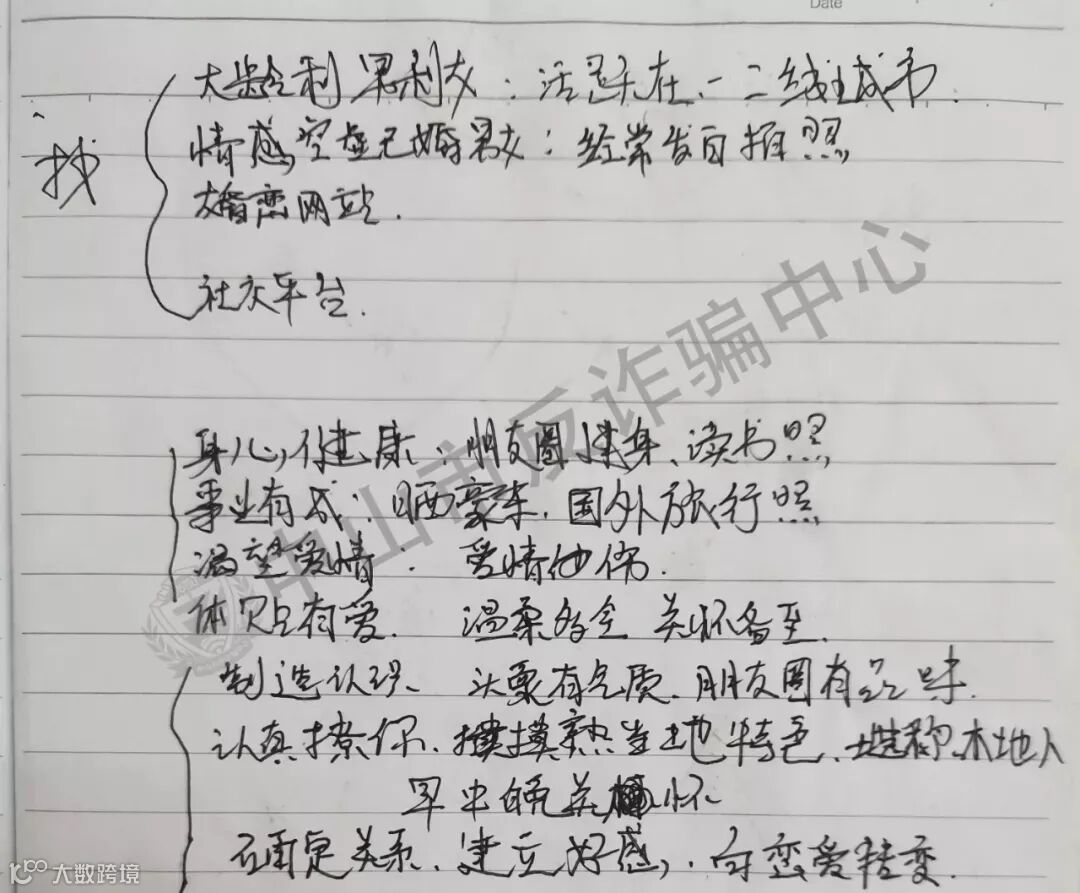 Date
找
大龄剩男剩女：活跃在一二线城市.
情感空虚已婚男女：经常发自拍照
婚恋网站.
社交平台.
中山市反诈骗中心
身心健康：朋友圈健身、读书照
事业有成：晒豪车.国外旅行照
渴望爱情： 爱情他伤.
体贴有爱. 温柔多金 关怀备至.
制造认识、 头像有气质.朋友圈有品味.
认真撩你. 摸熟当地特色. 谎称本地人
早中晚关怀
确定关系. 建立好感,. 向恋爱转变.
大数跨境